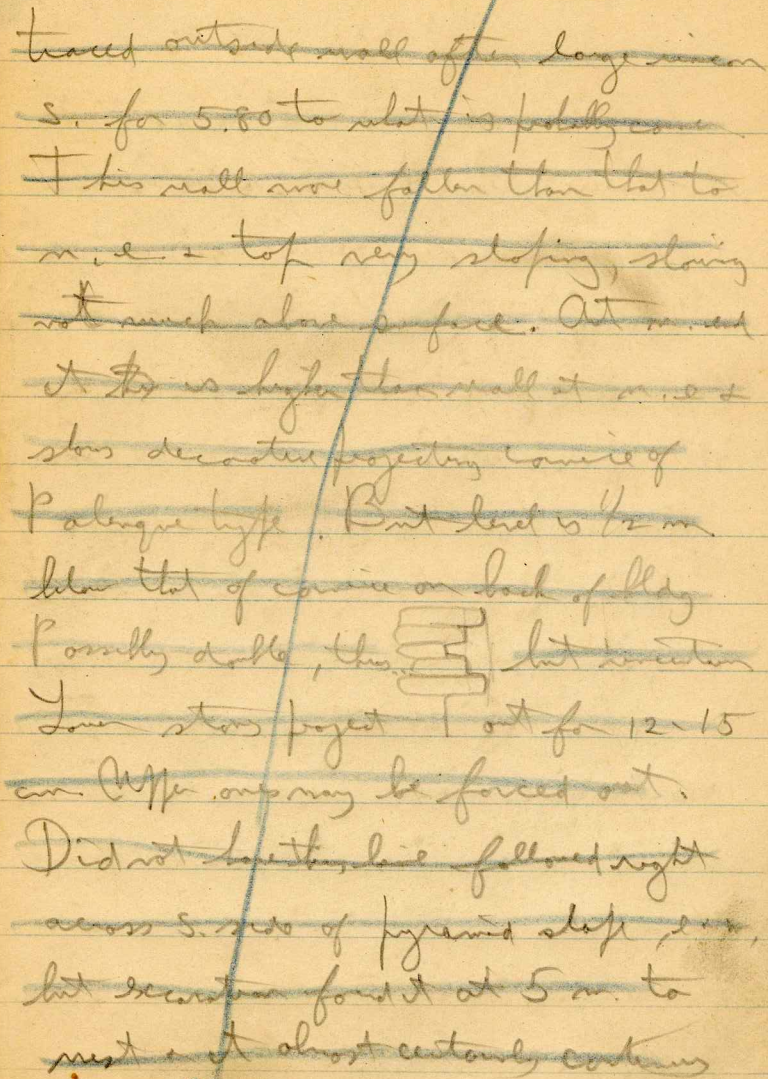 traced outside wall after large
S. for 5.80 to what is probably
This wall more fallen than that to
n.e + top very sloping, showing
not much above surface. At n. end
it is higher than wall at n.e +
shows decorative projecting cornice of
Palenque type. But level is 1/2 m
below that of cornice on back of bldg
Possibly double, thus but uncertain
Lower stones project out for 12-15
cm. Upper ones may be forced out.
Did not have this line followed right
across S. side of pyramid slope,
but excavation found it at 5 m. to
west + it almost certainly continues